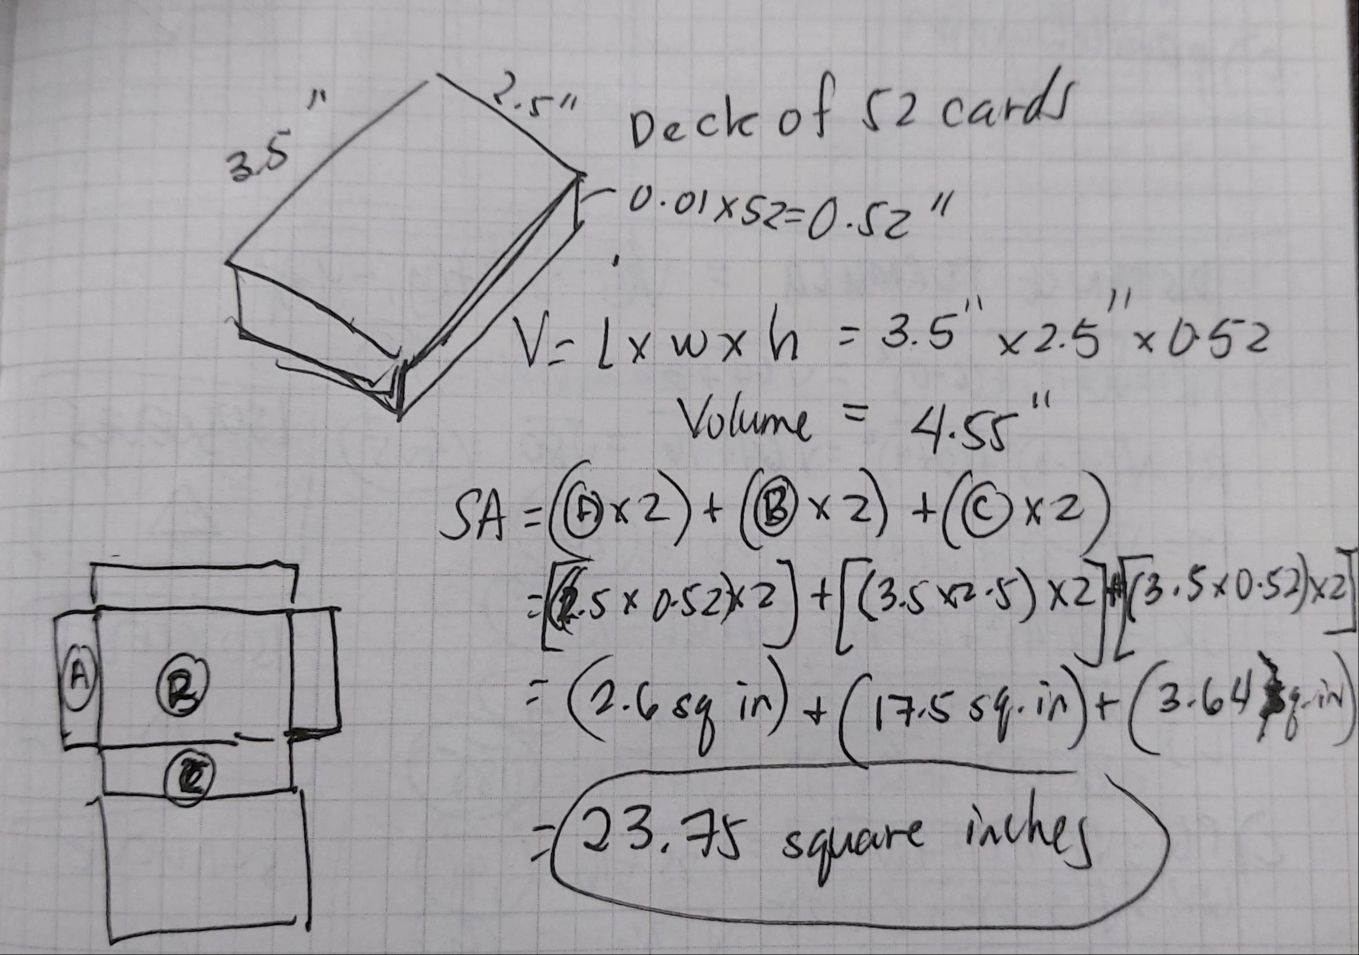 3.5"
2.5"
Deck of 52 cards
0.01x52=0.52"
V= L x w x h = 3.5" x 2.5" x 0.52
Volume = 4.55"
SA = (Ⓐ x 2) + (Ⓑ x 2) + (Ⓒ x 2)
= [(2.5 x 0.52) x 2] + [(3.5 x 2.5) x 2] + [(3.5 x 0.52) x 2]
= (2.6 sq in) + (17.5 sq. in) + (3.64 sq. in)
= 23.75 square inches
Ⓐ
Ⓑ
Ⓒ